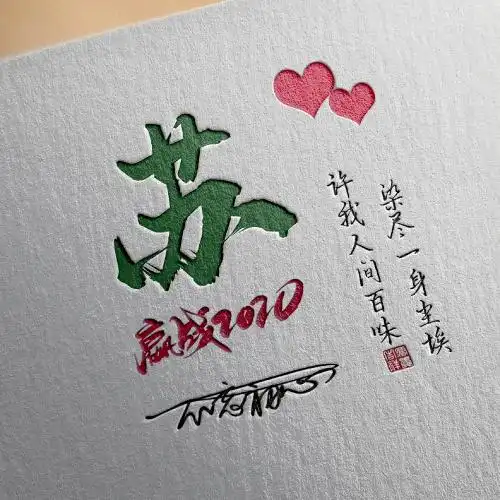 苏
赢战2020
染尽一身尘埃
许我人间百味